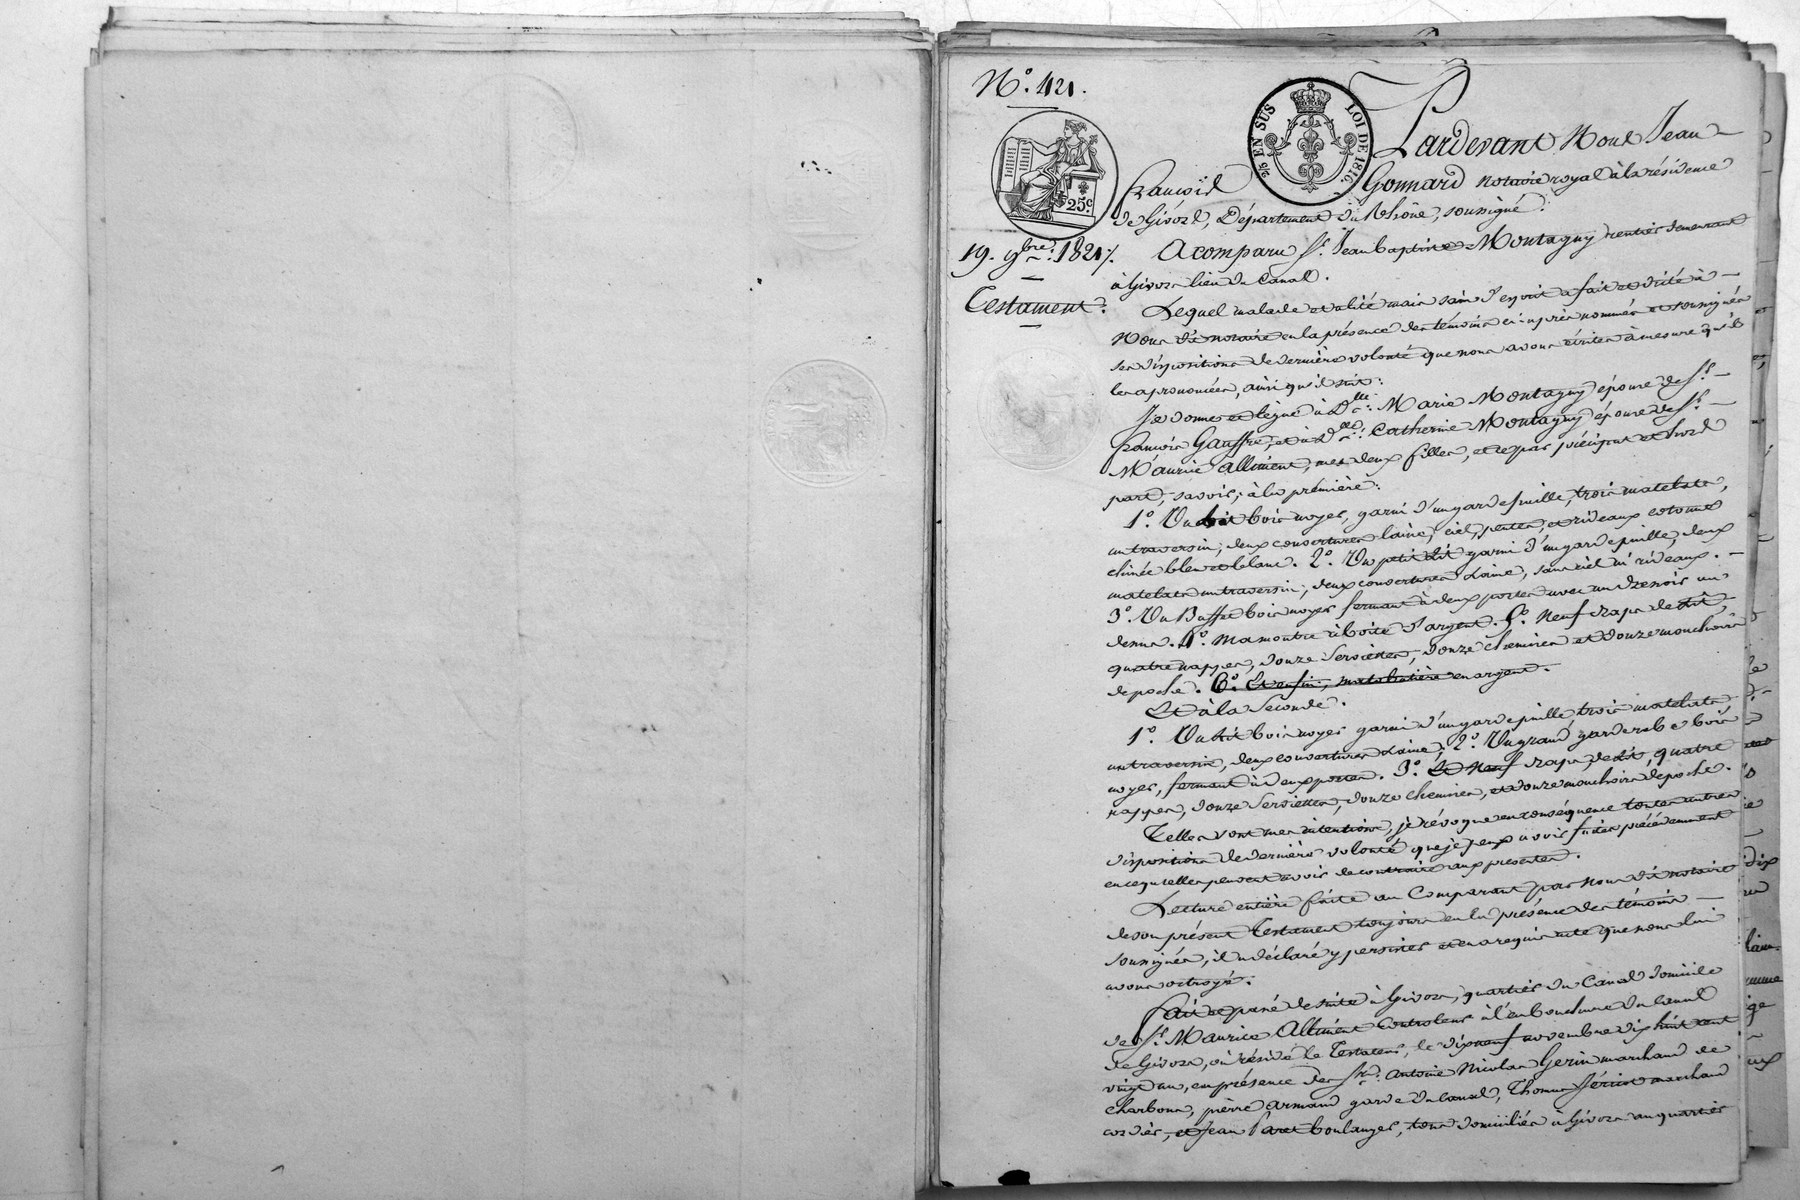 N.° 421.
2/5 EN SUS LOI DE 1816.
25.c
Pardevant Nous Jean
François Gonnard notaire royal à la résidence
de Givors, Département du Rhône, soussigné.
19. 9bre. 1821.
A comparu Sr. Jean Baptiste Montagny rentier demeurant
à Givors lieu du Canal.
Testament.
Lequel malade et alité mais sain d'esprit a fait et dicté à
Nous dit notaire en la présence des témoins ci-après nommés et soussignés
ses dispositions de dernière volonté que nous avons écrites à mesure qu'il
les a prononcées, ainsi qu'il suit:
Je donne et lègue à Dlle. Marie Montagny épouse de Sr.
François Gauffre, et à Dlle. Catherine Montagny épouse de Sr.
Maurice Alliment, mes deux filles, et ce par préciput et hors
part, savoir; à la première:
1.° Un lit bois noyer, garni d'un garde paille, trois matelats,
un traversin, deux couvertures laine, ciel, pentes, et rideaux cotonne
chinée bleu et blanc. 2.° Un petit lit garni d'un garde paille, deux
matelats un traversin, deux couvertures laine, sans ciel ni rideaux.
3.° Un Buffet bois noyer fermant à deux portes avec un dressoir au
dessus. 4.° Ma montre à boîte d'argent. 5.° Neuf draps de lit
quatre nappes, douze serviettes, douze chemises et douze mouchoirs
de poche. 6.° Et enfin, ma tabatière en argent.
Et à la seconde.
1.° Un lit bois noyer garni d'un garde paille, trois matelats
un traversin, deux couvertures laine; 2.° Un grand garderobe bois
noyer, fermant à deux portes. 3.° Et Neuf draps de lit, quatre
nappes, douze serviettes, douze chemises, et douze mouchoirs de poche.
Telles sont mes intentions, je révoque en conséquence toutes autres
dispositions de dernière volonté que je peux avoir faites précédemment
en ce qu'elles peuvent avoir de contraire aux présentes.
Lecture entière faite au Comparant par nous dit notaire
de son présent Testament toujours en la présence des témoins
soussignés, il a déclaré y persister et en a requis acte que nous lui
avons octroyé.
Fait et passé de suite à Givors, quartier du Canal domicile
de Sr. Maurice Alliment Controleur à l'embouchure du Canal
de Givors, où réside le Testateur, le dix neuf novembre dix huit cent
vingt un, en présence des Srs. Antoine Nicolas Gerin marchand de
charbons, pierre armand garde du canal, Thomas marchand
cordier, et Jean boulanger, tous domiciliés à Givors au quartier